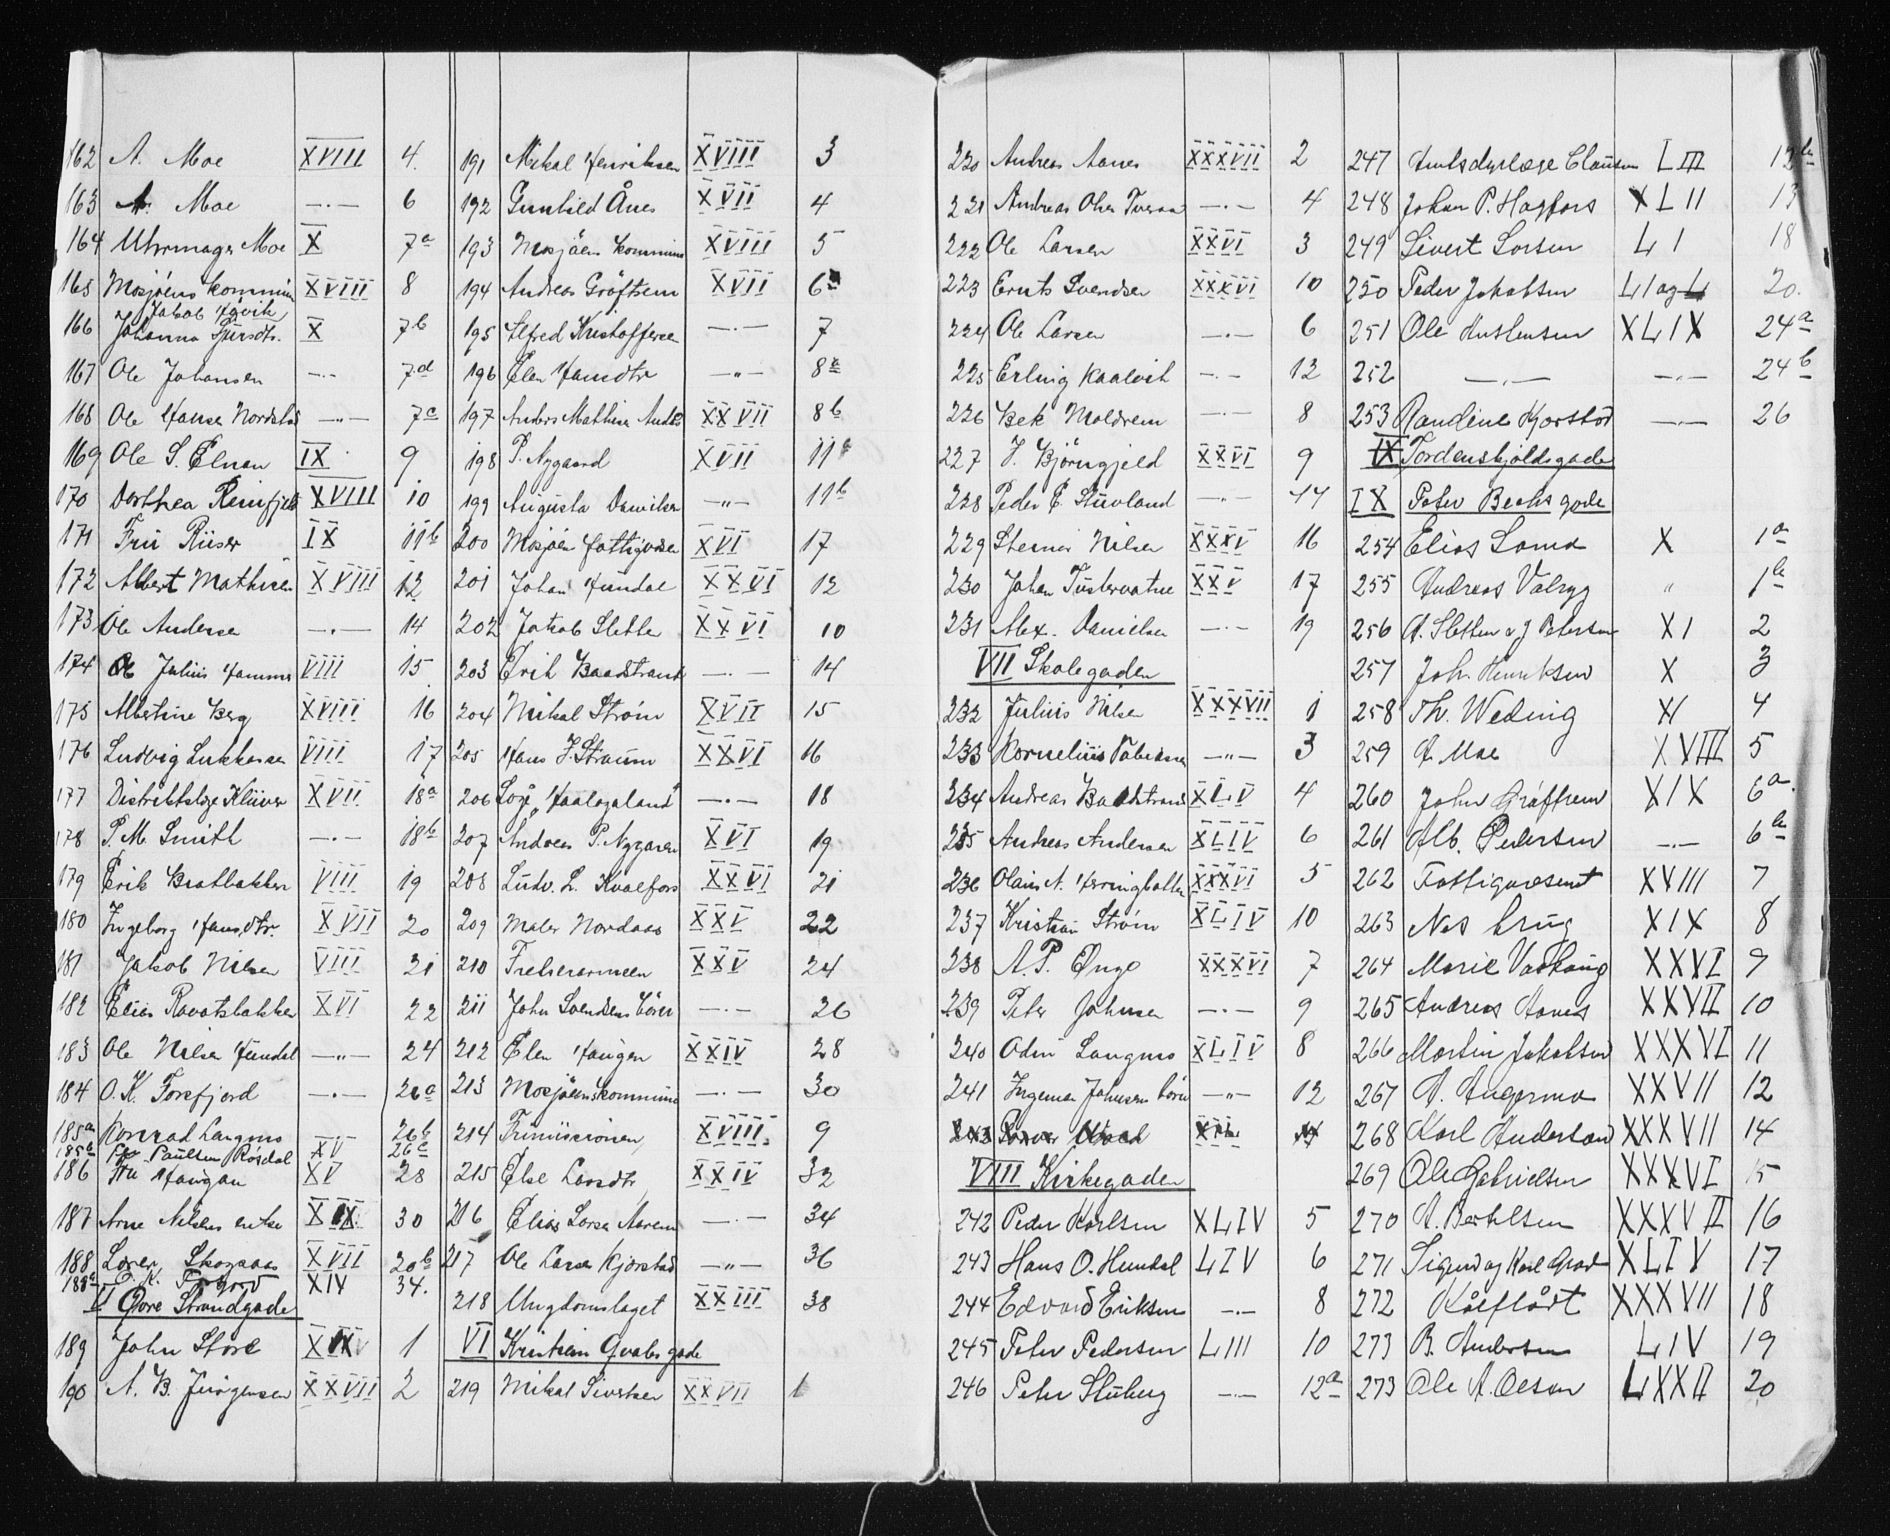 162 A. Moe XVIII 4.
163 A. Moe —.— 6
164 Uhrmager Moe X 7a
165 Mosjøens kommune XVIII 8
Jakob
166 Johanna X 7b
167 Ole Johansen —.— 7d
168 Ole Hansen Nordstad —.— 7c
169 Ole S. Elnan IX 9
170 Dorthea XVIII 10
171 Fru Riiser IX 11b
172 Albert Mathisen XVIII 12
173 Ole Andersen —.— 14
174 Ole Julius VIII 15
175 Albertine Berg XVIII 16
176 Ludvig Lukkassen VIII 17
177 Distriktslæge Klüver XVII 18a
178 P. M. Smith —.— 18b
179 Erik Bratbakken VIII 19
180 Ingeborg Hansdtr. XVII 20
181 Jakob Nilsen VIII 21
182 Elias XVI 22
183 Ole Nilsen —"— 24
184 O. K. Forsfjord —.— 26a
185a Konrad Langmo 26b
185b Paulsen Rosdal XV 26c
186 Haugan XV 28
187 Arne Nilsens enke 30
188 Loren Skogsaas XVII 30b
188a O. K. XIV 34.
V Øvre Strandgade
189 John Støre 1
190 A. B. Jürgensen XXVII 2
191 Mikal Henriksen XVIII 3
192 Gunhild Ånes XVII 4
193 Mosjøens kommune XVIII 5
194 Andreas Gröftrem XVII 6a
195 Alfred Kristoffersen —.— 7
196 Elen Hansdtr —"— 8a
197 Anders Mathisen XXVII 8b
198 P. Nygaard XVII 11a
199 Augusta Danielsen —"— 11b
200 Mosjøen Fattigvæsen XVI 17
201 Johan Hundal XXVI 12
202 Jakob Slette XXVI 10
203 Erik Baadstrand —.— 14
204 Mikal Strøm XVII 15
205 Hans J. Straum XXVI 16
206 Loge "Haalogaland" —.— 18
207 Andreas P. Nygaard XVI 19
208 Ludv. L. Kvalfors XXVI 21
209 Maler Nordaas XXV 22
210 Frelserarmeen XXV 24
211 John Svendsens —.— 26
212 Elen Haugen XXIV 28
213 Mosjøens kommune —.— 30
214 Frimissionen XVIII 9
215 Else Larsdtr XXIV 32
216 Elias Larsen —.— 34
217 Ole Larsen Kjørstad —"— 36
218 Ungdomslaget XXIII 38
VI Kristian Qvales gade
219 Mikal Sivertsen XXVII 1
220 Andreas Aanes XXXVII 2
221 Andreas Olsen —.— 4
222 Ole Larsen XXVI 3
223 Ernts Svendsen XXXVI 10
224 Ole Larsen —.— 6
225 Erling —.— 12
226 Bek Moldrem —.— 8
227 J. Bjørngjeld XXVI 9
228 Peder E. Stuvland —.— 14
229 Steener Nilsen XXXV 16
230 Johan XXV 17
231 Alex. Danielsen —.— 19
VII Skolegaden
232 Julius Nilsen XXXVII 1
233 Kornelius —"— 3
234 Andreas Baadstrand XLV 4
235 Andreas Andersen XLIV 6
236 Olaus N. Herringbotten XXXVI 5
237 Kristian Strøm XLIV 10
238 A. P. Enge XXXVI 7
239 Peter Johnsen —.— 9
240 Odin Langmo XLIV 8
241 Ingeman Johnsens —"— 12
VIII Kirkegaden
242 Peder Karlsen XLIV 5
243 Hans O. Hundal LIV 6
244 Edvard Eriksen —.— 8
245 Peter Pedersen LIII 10
246 Peter —.— 12a
247 Amtsdyrlæge Clausen LIII 12b
248 Johan P. Hagfors XLII 13
249 Sivert Larsen LI 18
250 Peder Jakobsen LI og L 20.
251 Ole XLIX 24a
252 —.— —.— 24b
253 Randine Kjorstad —.— 26
IX Tordenskjoldsgade
IX Peter Bechs gade
254 Elias X 1a
255 Andreas " 1b
256 A. Sletten & J. Petersen XI 2
257 John Henriksen X 3
258 Th. Weding XI 4
259 A. Moe XVIII 5
260 John Gröftrem XIX 6a.
261 Alb. Pedersen —.— 6b
262 Fattigvæsenet XVIII 7
263 Nes brug XIX 8
264 Marie XXVI 9
265 Andreas Aanes XXVII 10
266 Martin Jakobsen XXXVI 11
267 A. Angermo XXVII 12
268 Karl Andersen XXXVII 14
269 Ole Gabrielsen XXXVI 15
270 A. Bertelsen XXXVII 16
271 Sigurd og Karl XLIV 17
272 XXXVII 18
273 B. Andersen LIV 19
273 Ole A. Olsen LXXII 20